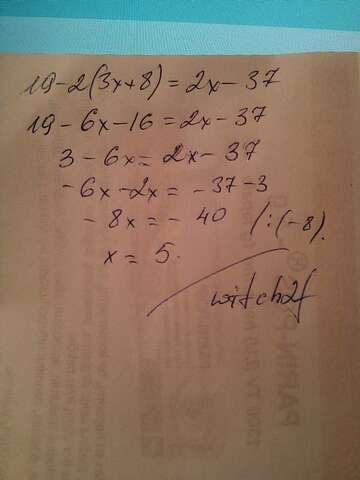 19-2(3x+8)=2x-37
19-6x-16=2x-37
3-6x=2x-37
-6x-2x=-37-3
-8x=-40 /:(-8).
x=5.
witch2f